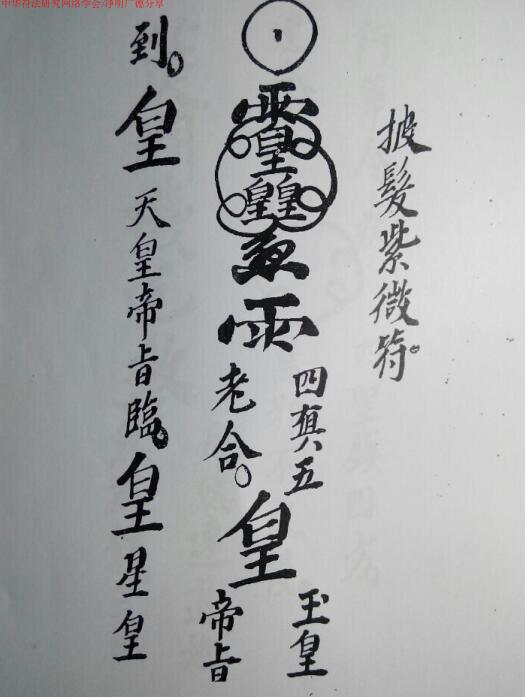 中华符法研究网络学会/净明广德分享
披髮紫微符。
雨
四真五
老合。
皇
玉皇
帝旨
到。
皇
天皇帝旨臨。
皇
星皇